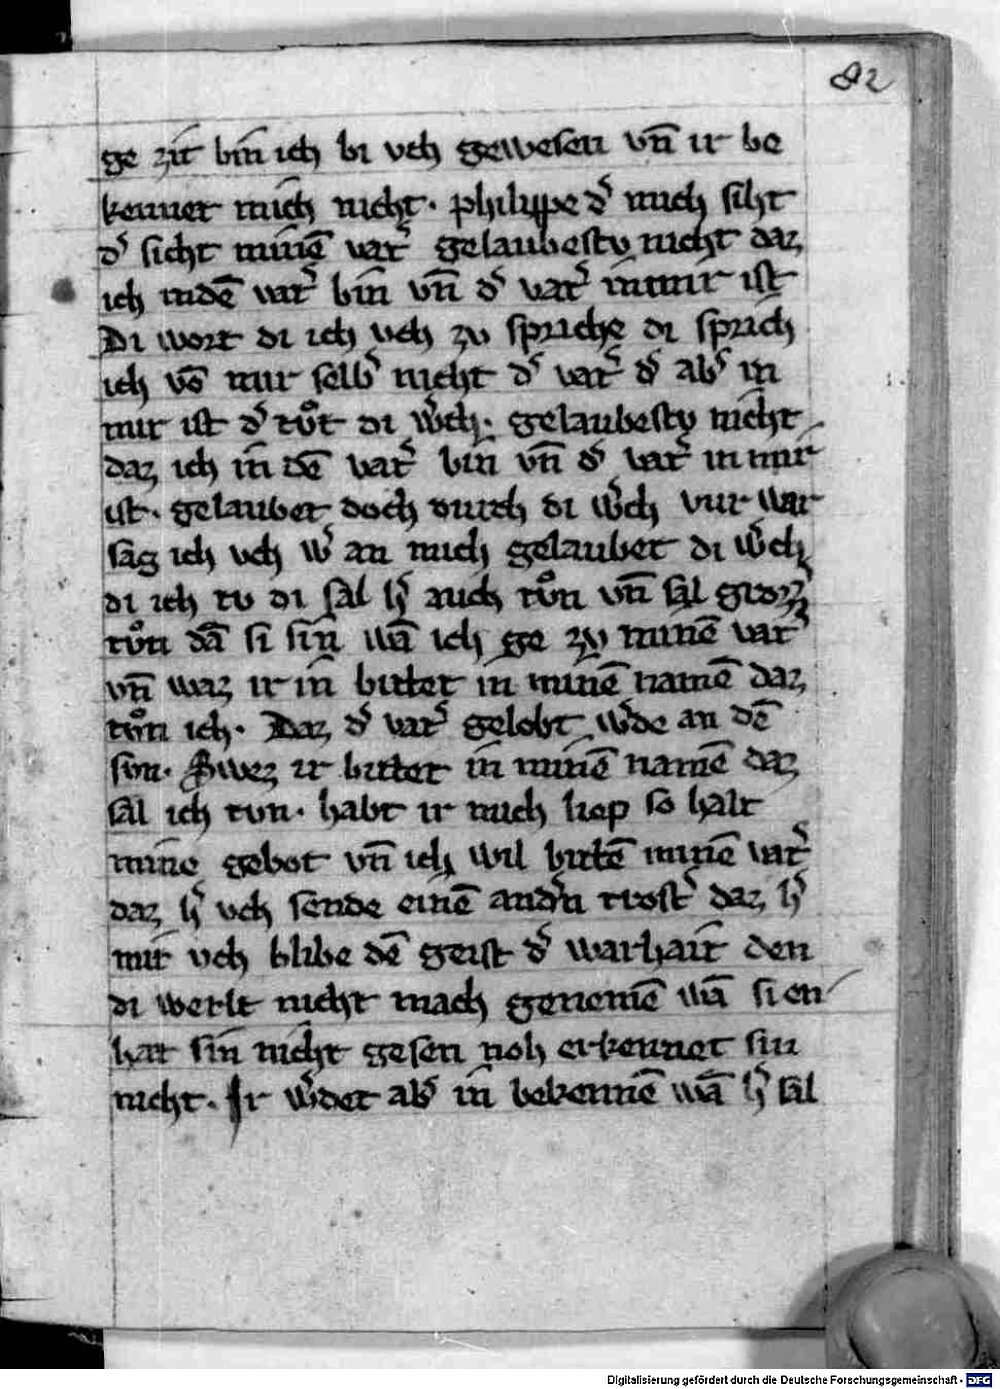 82
ge zit bin ich bi vch gewesen vn̄ ir be
kennet mich nicht. philippe d͛ mich siht
d͛ sicht minē vat͛ gelaubestv nicht daz
ich indē vat͛ bin vn̄ d͛ vat͛ inmir ist
Di wort di ich vch zv spriche di sprich
ich vō mir selb͛ nicht d͛ vat͛ d͛ ab͛ in
mir ist d͛ tvͦt di w͛ch. gelaubestv nicht
daz ich in dē vat͛ bin vn̄ d͛ vat͛ in mir
ist. gelaubet doch durch di w͛ch vur war
sag ich vch w͛ an mich gelaubet di w͛ch
di ich tv di sal h͛ auch tvͦn vn̄ sal grozz͛
tvͦn dā si sin wā ich ge zv minē vat͛
vn̄ waz ir in bittet in minē namē daz
tvͦn ich. Daz d͛ vat͛ gelobt w͛de an dē
svn. Swez ir bittet in minē namē daz
sal ich tvn. habt ir mich liep so halt
mine gebot vn̄ ich wil bittē minē vat͛
daz h͛ vch sende einē and͛n trost͛ daz h͛
mit vch blibe dē geist d͛ warhait den
di werlt nicht mach genemē wā si en
hat sin nicht gesen noh erkennet sin
nicht. Ir w͛det ab͛ in bekennē wā h͛ sal
Digitalisierung gefördert durch die Deutsche Forschungsgemeinschaft - DFG